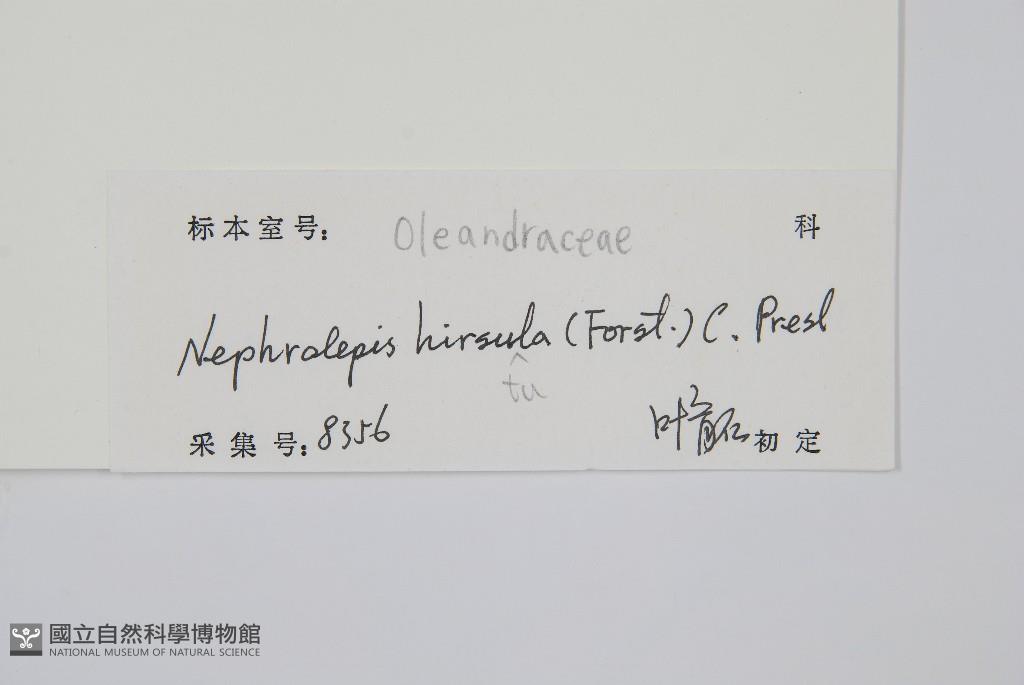 标本室号： Oleandraceae 科
Nephrolepis hirsula (Forst.) C. Presl
tu
采集号：8356 叶 初定
國立自然科學博物館
NATIONAL MUSEUM OF NATURAL SCIENCE